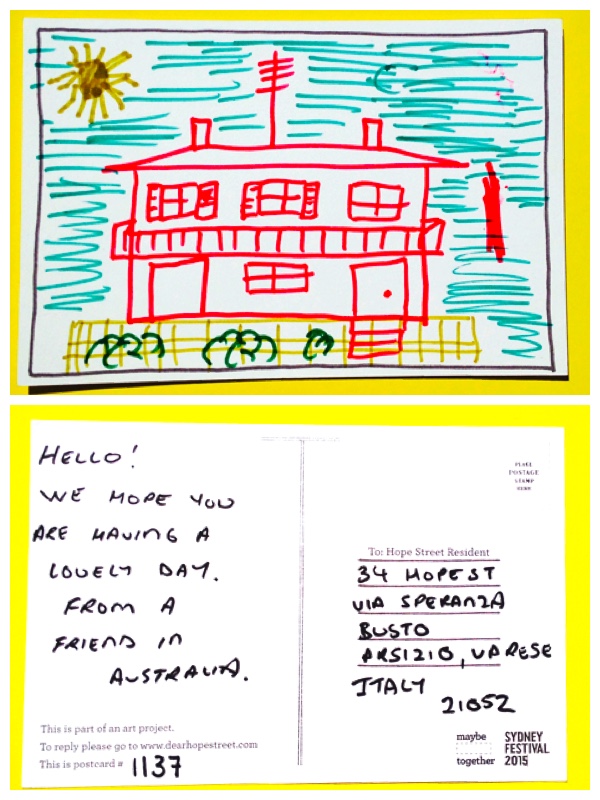 HELLO!
WE HOPE YOU
ARE HAVING A
LOVELY DAY.
FROM A
FRIEND IN
AUSTRALIA.
This is part of an art project.
To reply please go to www.dearhopestreet.com
This is postcard # 1137
PLACE
POSTAGE
STAMP
HERE
To: Hope Street Resident
34 HOPE ST
VIA SPERANZA
BUSTO
ARSIZIO, VARESE
ITALY
21052
maybe
together
SYDNEY
FESTIVAL
2015